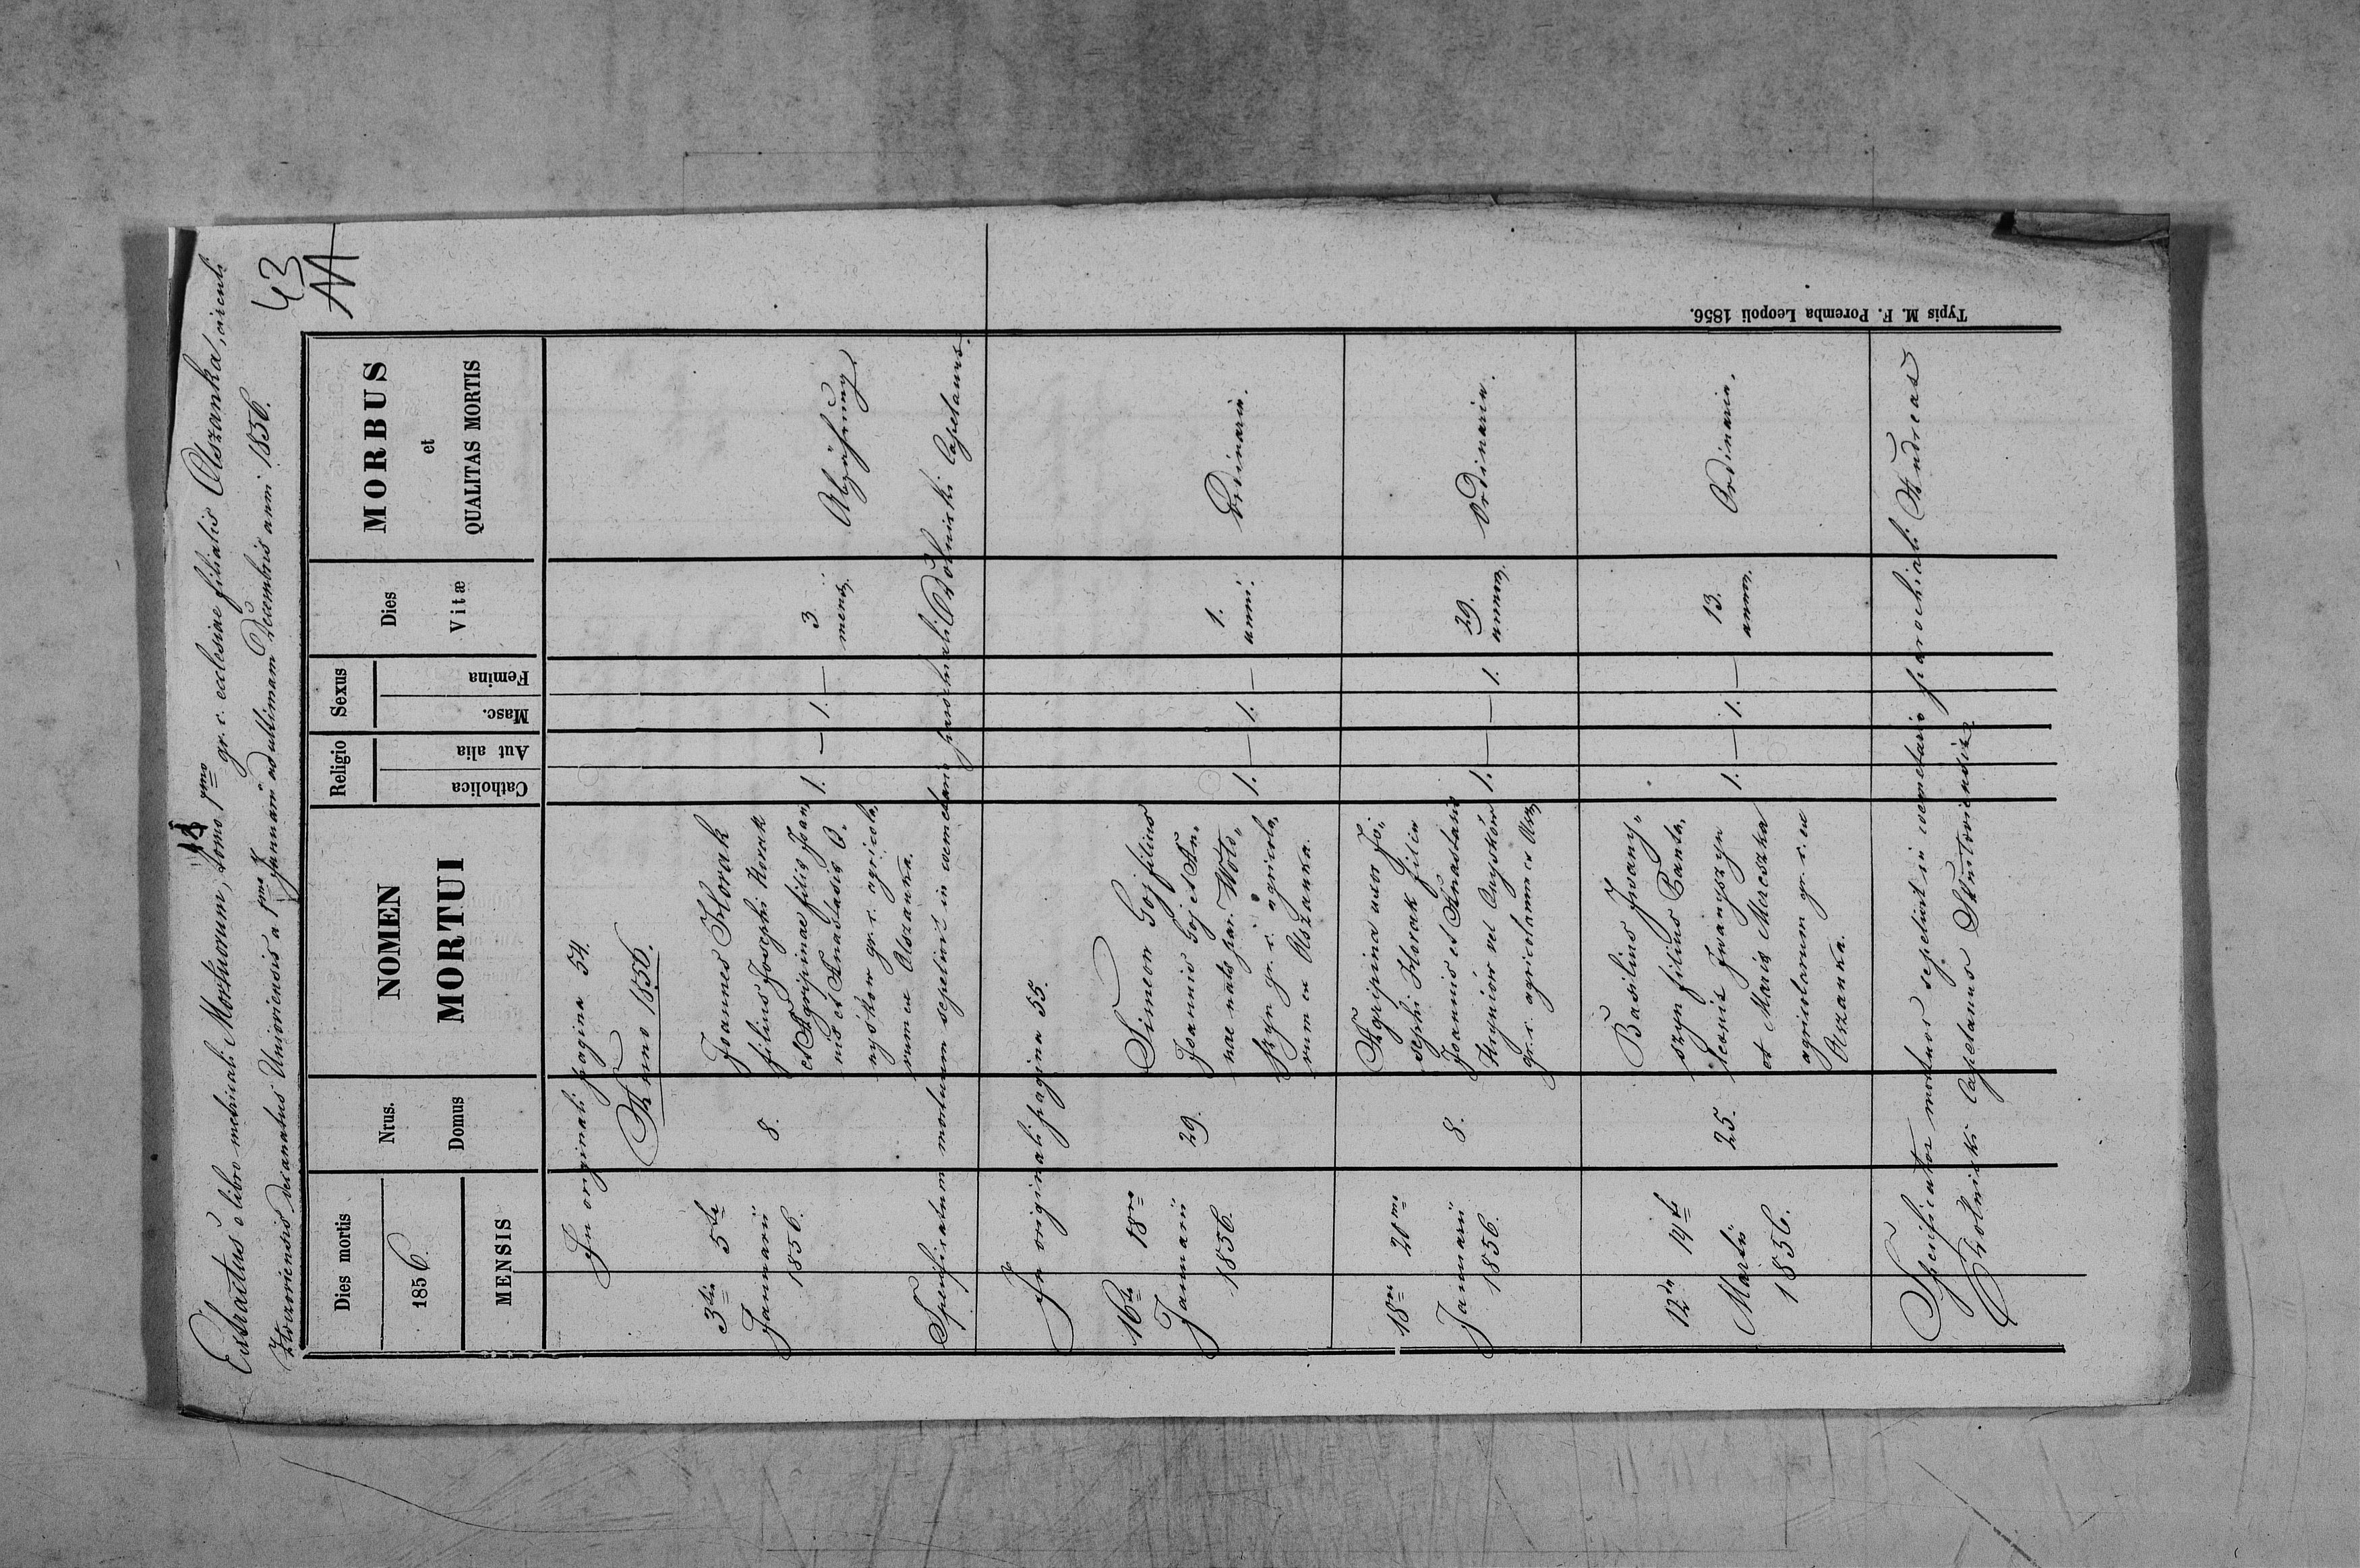 43
Extractus e libro metricali Mortuorum, tomo 1mo gr. c. ecclesiae filialis Olszanka, circuli
Złoczoviensis decanatus Univiensis a 1ma Januarii ad ultimam Decembris anni 1856.
Dies mortis
1856.
MENSIS
Nrus.
Domus
NOMEN
MORTUI
Religio
Catholica
Aut alia
Sexus
Masc.
Femina
Dies
Vitæ
MORBUS
et
QUALITAS MORTIS
In originali pagina 54.
Anno 1856.
3tia 5ta
Januarii
1856.
8.
Joannes Horak
filius Josephi Horak
et Agripinae filis Joan
nis et Anastasis O
nyskow gr. c. agricola,
rum ex Olszanka.
1. — 1. —
3
mens.
Abzehrung.
Specificatum mortuum sepelivit in coemeterio parochiali Capelanus.
In originali pagina 55.
16ta 18va
Januarii
1856.
29.
Simeon Goj filius
Joannis Goj et An,
nae nata par. Woło,
szyn gr. c. agricola,
rum ex Olszanka.
1. — 1. —
1.
anni.
Ordinaria.
18va 20ma
Januarii
1856.
8.
Agripina uxor Jo,
sephi Horak filia
Joannis et Anastasis
gr. c. agricolarum ex Olsz
1. — — 1.
29.
annor.
Ordinaria.
12da 14ta
Martii
1856.
25.
Basilius Iwany,
szyn filius Pante,
leonis Iwanyszyn
et Maris Macszka
agricolarum gr. c. ex
Olszanka.
1. — 1. —
13.
annor.
Ordinaria.
Specificatos mortuos sepelivit in coemeterio parochiali Andreas
Capelanus
Typis M. F. Poremba Leopoli 1856.